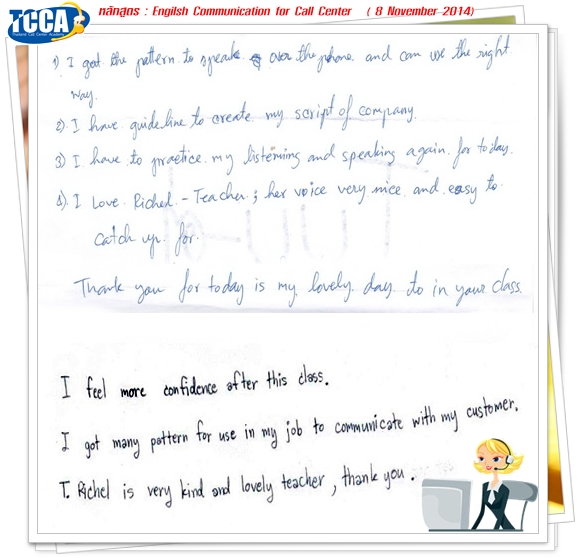 TCCA
Thailand Call Center Academy
หลักสูตร : Engilsh Communication for Call Center ( 8 November 2014)
1) I got the pattern to speak over the phone and can use the right
way.
2) I have guideline to create my script of company.
3) I have to practice my listening and speaking again for today.
4) I Love Richel - Teacher ; her voice very nice and easy to
catch up for.
Thank you for today is my lovely day to in your class.
I feel more confidence after this class.
I got many pattern for use in my job to communicate with my customer.
T. Richel is very kind and lovely teacher, thank you.